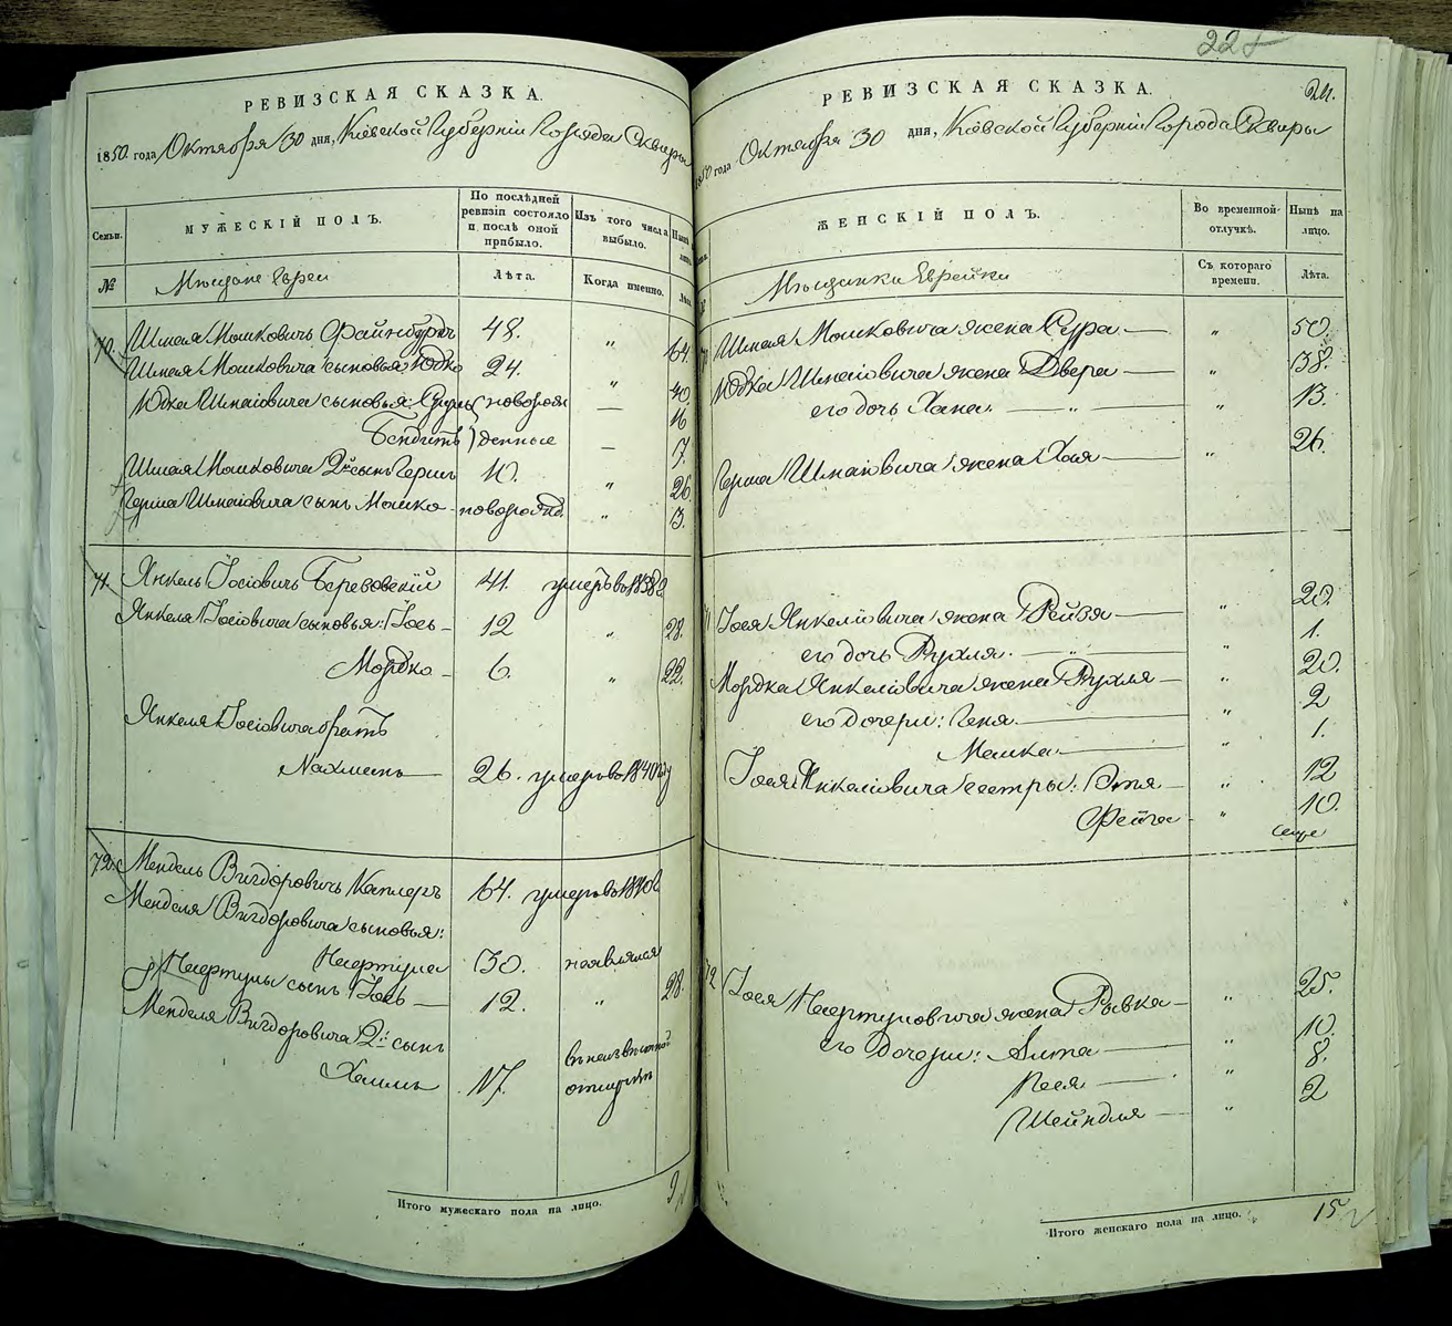 РЕВИЗСКАЯ СКАЗКА.
1850 года Октября 30 дня, Кіевской Губерніи Города Сквиры
Семьи.
МУЖЕСКІЙ ПОЛЪ.
По послѣдней ревизіи состояло и послѣ оной прибыло.
Изъ того числа выбыло.
№
Мѣщане Евреи
Лѣта.
Когда именно.
Лѣта
70. Шмая Мошковичъ 48. " 64.
Шмая Мошковича сыновья: Юдко 24. " 40
Юдка Шмаіовича сыновья: новорож — 16
денные — 7.
Шмая Мошковича 2й сынъ Герш 10. " 26
Герша Шмаіовича сынъ Мошко - новорожд. " 3.
71. Янкель Іосіовичъ Березовскій 41. умеръ во 1838 г
Янкеля Іосіовича сыновья: Іось - 12 " 28.
Мордко - 6. " 22.
Янкеля Іосіовича братъ
Нахманъ — 26. умеръ во 1840 г
72. Мендель Вигдоровичъ 64. умеръ во
Менделя Вигдоровича сыновья:
30. неявился
сынъ Іось — 12. " 28.
Менделя Вигдоровича 2й сынъ
Хаимъ 17. въ неизвѣстной отлучкѣ
Итого мужескаго пола на лицо. 9
225
РЕВИЗСКАЯ СКАЗКА. 24.
1850 года Октября 30 дня, Кіевской Губерніи Города Сквиры
ЖЕНСКІЙ ПОЛЪ.
Во временной отлучкѣ.
Нынѣ на лицо.
Мѣщанки Еврейки
Съ котораго времени.
Лѣта.
Шмая Мошковича жена Сура — " 50.
Юдка Шмаіовича жена Двера — " 38.
его дочь Хана. — " — " 13.
Герша Шмаіовича жена Хая — " 26.
71 Іося Янкеліовича жена Рейзя — " 20.
его дочь Рухля. — " — " 1.
Мордка Янкеліовича жена Рухля — " 20.
его дочери: Геня — " 2
Малка — " 1.
Іося Янкеліовича сестры: Этя — " 12
Фейга - " 10.
72 Іося жена Рывка — " 25.
его дочери: — " 10.
Песя — " 8.
Шейндля — " 2
Итого женскаго пола на лицо. 15